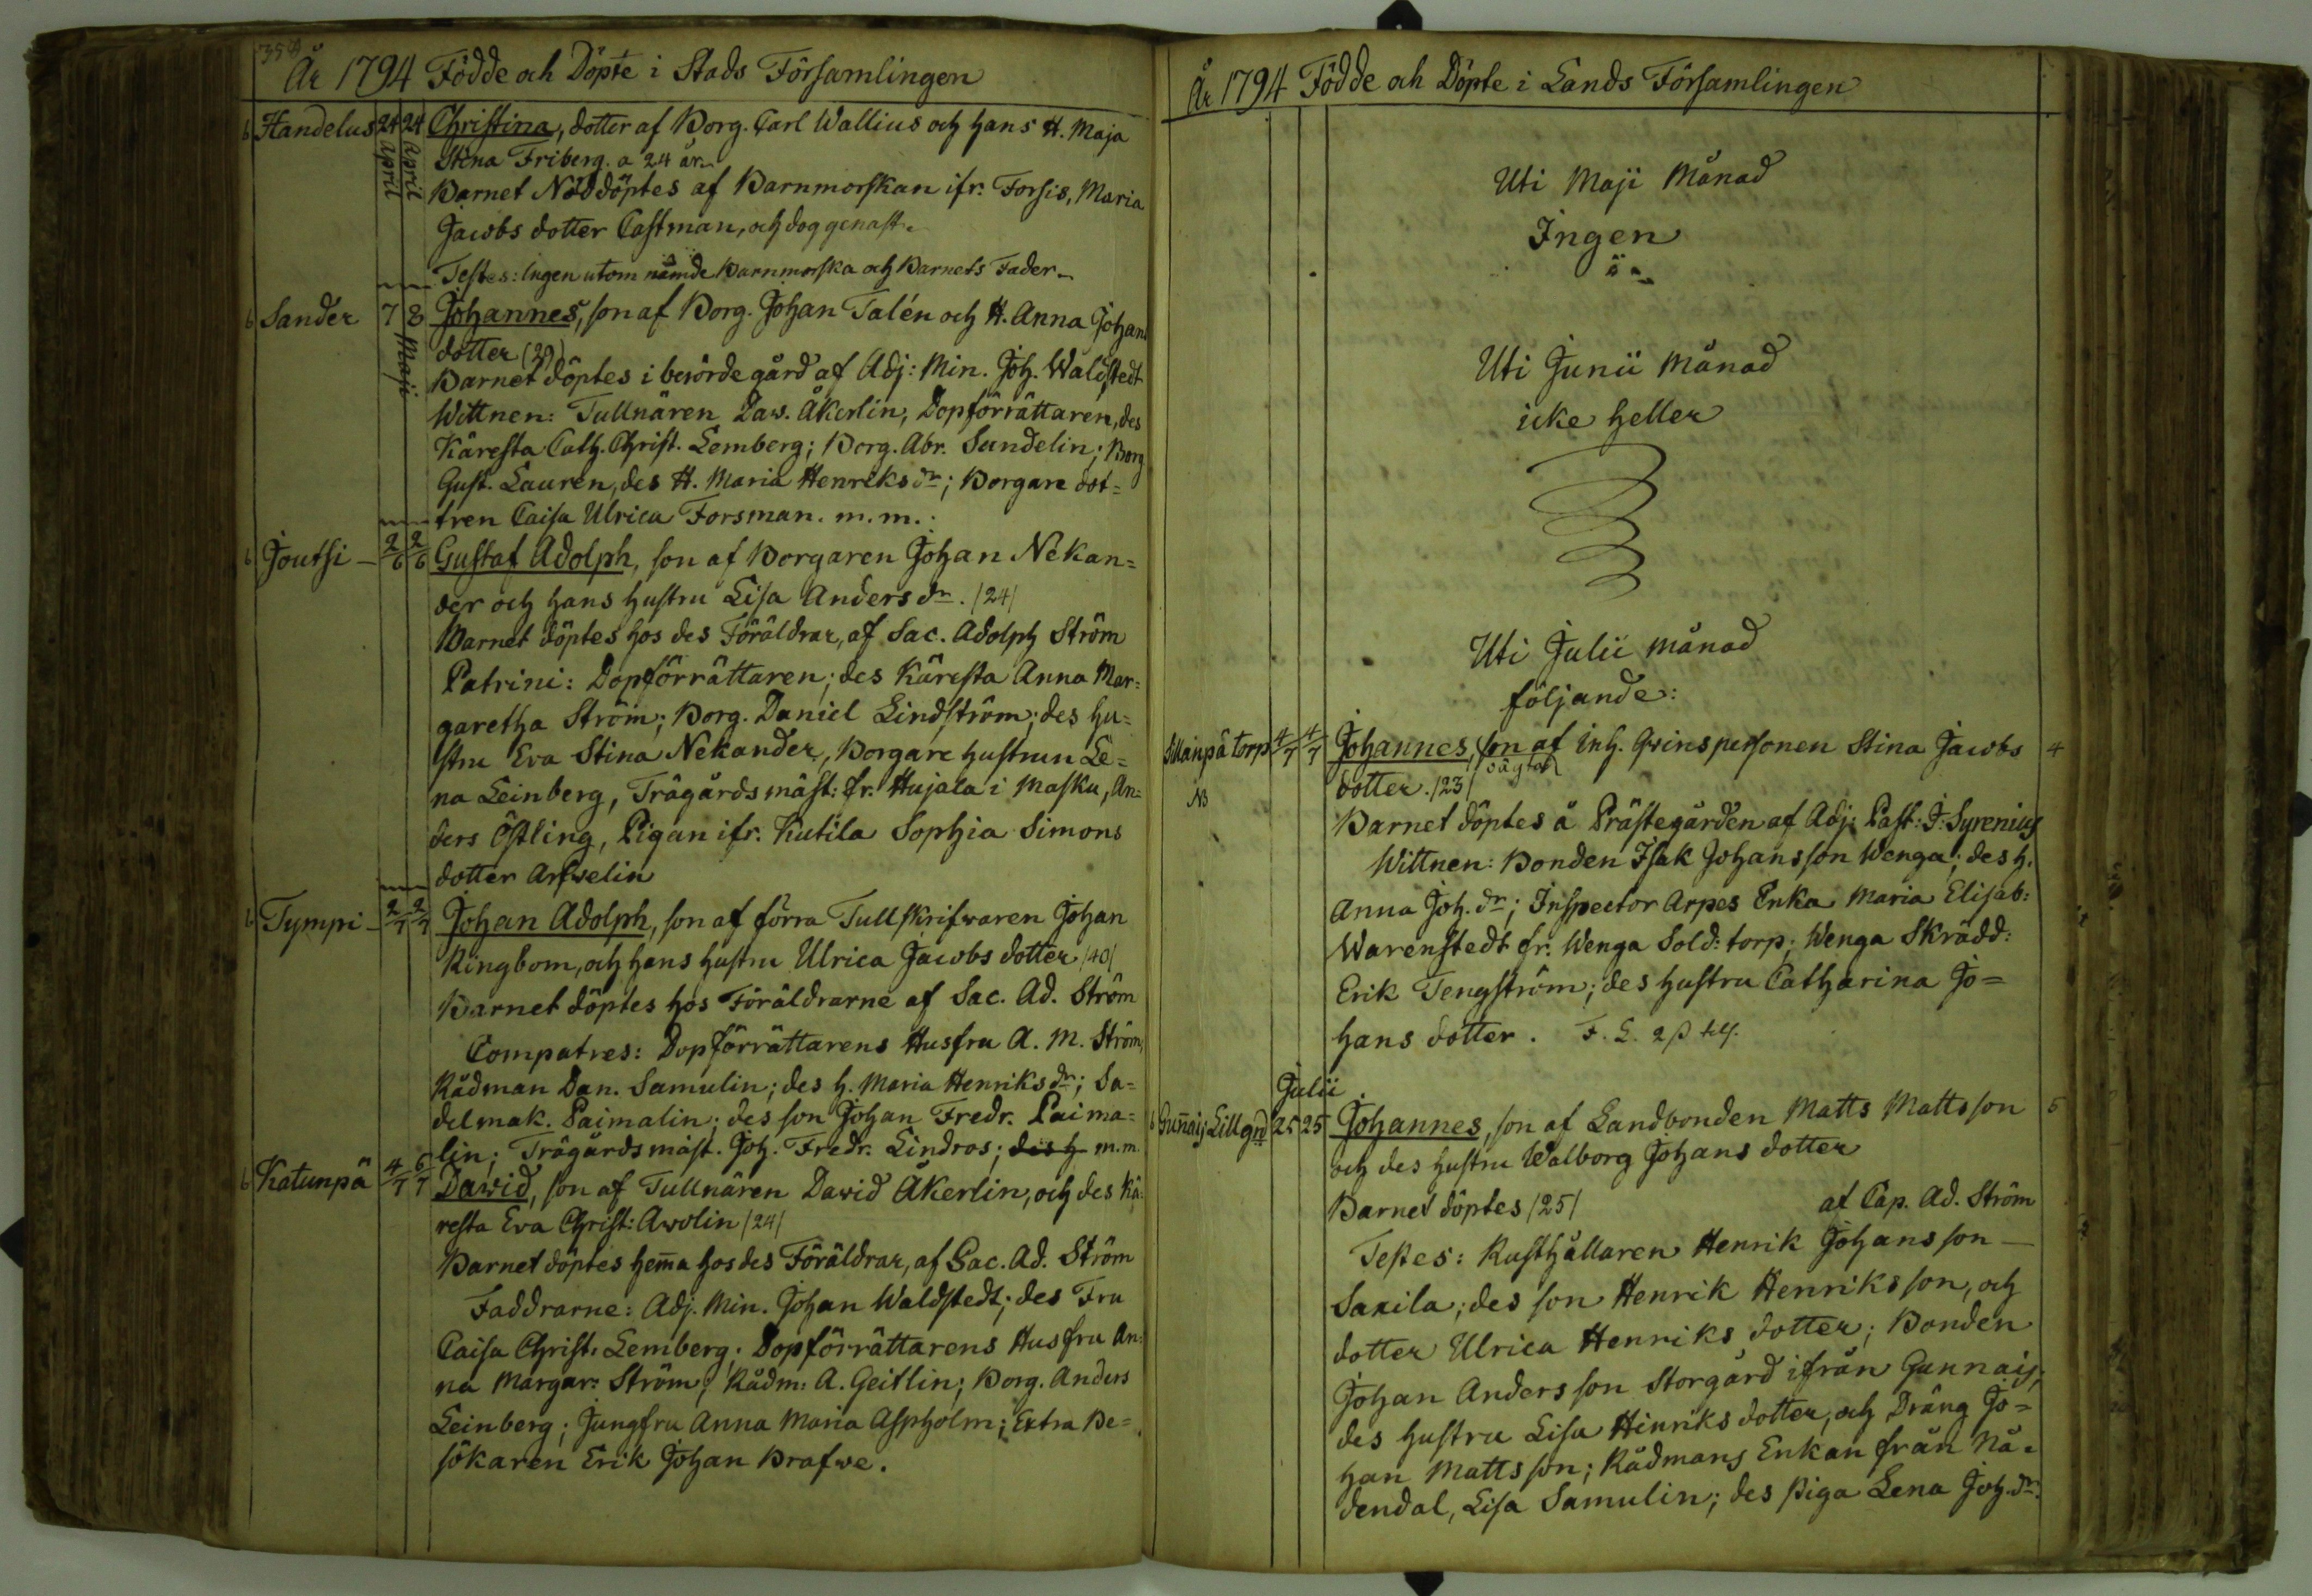 354
År 1794 Födde och Döpte i Stads Församlingen
6 Handelus 24 24 Christina, dotter af Borg. Carl Wallius och hans H. Maja
April April Stina Friberg. a 24 år.
Barnet Nöddöptes af Barnmorskan ifr. Forsis, Maria
Jacobs dotter Castman, och dog genast.
Testes: Ingen utom nämde Barnmorska och Barnets Fader.
6 Sander 7 8 Johannes, son af Borg. Johan Talén och H. Anna Johans
Maji dotter (29)
Barnet döptes i berörde gård af Adj: Min. Joh. Waldstedt
Wittnen: Tullnären Daw. Åkerlin, Dopförrättaren, des
Käresta Cath. Christ. Lemberg; Borg. Abr. Sundelin; Borg
Gust. Lauren, des H. Maria Henriks dr; Borgare dot=
tren Caisa Ulrica Forsman. m.m.
6 Joutsi – 2/6 2/6 Gustaf Adolph, son af Borgaren Johan Nekan=
der och hans hustru Lisa Anders dr. /24/
Barnet döptes hos des Föräldrar, af Sac. Adolph Ström
Patrini: Dopförrättaren; des Käresta Anna Mar=
garetha Ström; Borg. Daniel Lindström; des hu=
stru Eva Stina Nekander, Borgare hustrun Le=
na Leinberg, Trägårdsmäst: fr. Hujala i Masku, An=
ders Östling, Pigan ifr. Kutila Sophia Simons
dotter Arfwelin
6 Tympi – 2/7 2/7 Johan Adolph, son af förra Tullskrifwaren Johan
Ringbom, och hans hustru Ulrica Jacobs dotter /40/
Barnet döptes hos Föräldrarne af Sac. Ad. Ström
Compatres: Dopförrättarens Husfru A. M. Ström,
Rådman Dan. Samulin; des h. Maria Henriks dr; Sa=
delmak. Paimalin; des son Johan Fredr. Paima=
lin; Trägårdsmäst. Joh. Fredr. Lindros; des h m.m.
6 Katunpä 4/7 6/7 Dawid, son af Tullnären Dawid Åkerlin, och des Kä=
resta Eva Christ: Awolin /24/
Barnet döptes hema hos des Föräldrar, af Sac. Ad. Ström
Faddrarne: Adj. Min. Johan Waldstedt; des Fru
Caisa Christ. Lemberg; Dopförrättarens Husfru An=
na Margar: Ström; Rådm: A. Geitlin; Borg. Anders
Leinberg; Jungfru Anna Maria Aspholm; Extra Be=
sökaren Erik Johan Brafwe.
År 1794 Födde och Döpte i Lands Församlingen
Uti Maji Månad
Ingen
Uti Junii Månad
icke heller
Uti Julii månad
följande:
torp 4/7 4/7 Johannes, son af Inh. qvinspersonen Stina Jacobs 4
NB dotter. /23/
Barnet döptes å Prästegården af Adj: Past: J: Syrenius
Wittnen: Bonden Isak Johansson Wenga; des h.
Anna Joh. dr; Inspector Arpes Enka Maria Elisab:
Warenstedt fr. Wenga Sold: torp; Wenga Skrädd:
Erik Tengström; des hustru Catharina Jo=
hans dotter. F. L. 2 β
Julii
6 Gunnais Lillgrd 25 25 Johannes, son af Landbonden Matts Mattsson 5
och des hustru Walborg Johans dotter
Barnet döptes /25/ af Cap. Ad. Ström
Testes: Rusthållaren Henrik Johansson –
Saxila; des son Henrik Henriksson, och
dotter Ulrica Henriks dotter; Bonden
Johan Andersson Storgård ifrån Gunnais;
des hustru Lisa Hinriks dotter, och Dräng Jo=
han Mattsson; Rådmans Enkan från Nå=
dendal, Lisa Samulin; des piga Lena Joh. dr.